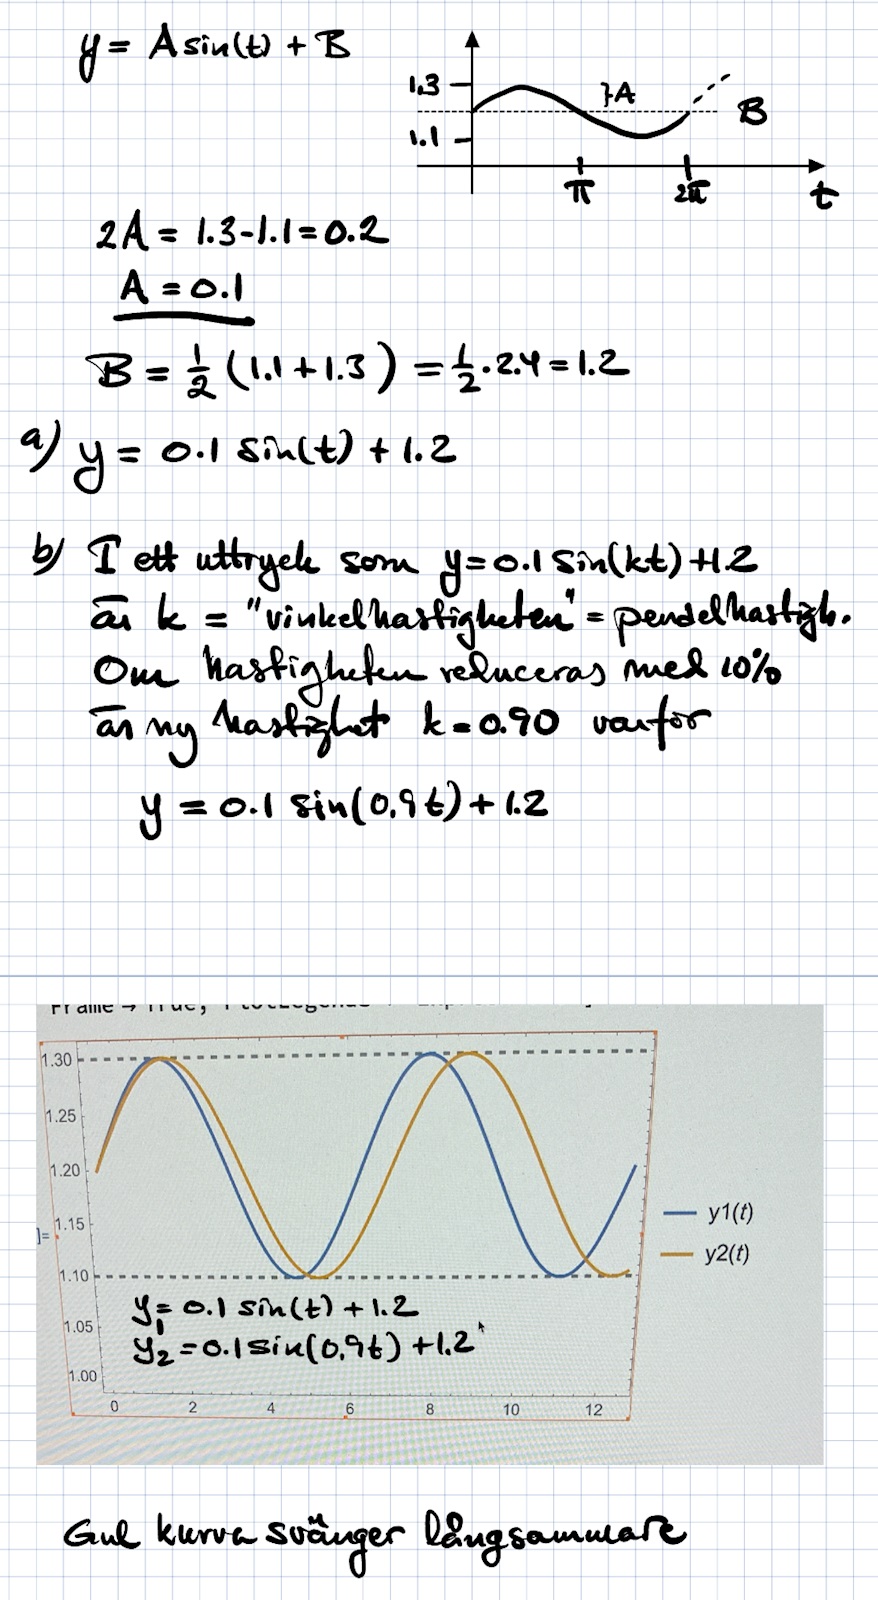 y = A sin(t) + B
1.3
}A
B
1.1
π
2π
t
2A = 1.3-1.1 = 0.2
A = 0.1
B = 1/2 (1.1 + 1.3) = 1/2 · 2.4 = 1.2
a) y = 0.1 sin(t) + 1.2
b) I ett uttryck som y=0.1 sin(kt)+1.2
är k = "vinkelhastigheten" = pendelhastigh.
Om hastigheten reduceras med 10%
är ny hastighet k=0.90 varför
y = 0.1 sin(0,9t) + 1.2
Frame → True,
1.30
1.25
1.20
]=
1.15
1.10
1.05
1.00
y1(t)
y2(t)
y₁= 0.1 sin(t) + 1.2
y₂ = 0.1 sin(0,9t) + 1.2
0 2 4 6 8 10 12
Gul kurva svänger långsammare